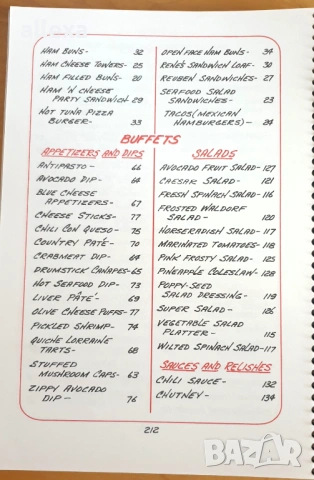 alexxa
HAM BUNS- 32
HAM CHEESE TOWERS- 25
HAM FILLED BUNS- 20
HAM 'N CHEESE
PARTY SANDWICH- 29
HOT TUNA PIZZA
BURGER- 33
OPEN FACE HAM BUNS- 34
RENE'S SANDWICH LOAF- 30
REUBEN SANDWICHES- 27
SEAFOOD SALAD
SANDWICHES- 23
TACOS (MEXICAN
HAMBURGERS)- 24
BUFFETS
APPETIZERS AND DIPS
ANTIPASTO- 66
AVOCADO DIP- 64
BLUE CHEESE
APPETIZERS- 67
CHEESE STICKS- 77
CHILI CON QUESO- 75
COUNTRY PATÉ- 70
CRABMEAT DIP- 64
DRUMSTICK CANAPES- 65
HOT SEAFOOD DIP- 73
LIVER PÂTÉ- 69
OLIVE CHEESE PUFFS- 77
PICKLED SHRIMP- 74
QUICHE LORRAINE
TARTS- 68
STUFFED
MUSHROOM CAPS- 63
ZIPPY AVOCADO
DIP- 76
SALADS
AVOCADO FRUIT SALAD- 127
CAESAR SALAD- 121
FRESH SPINACH SALAD- 116
FROSTED WALDORF
SALAD- 120
HORSERADISH SALAD- 117
MARINATED TOMATOES- 118
PINK FROSTY SALAD- 125
PINEAPPLE COLESLAW- 128
POPPY-SEED
SALAD DRESSING- 119
SUPER SALAD- 126
VEGETABLE SALAD
PLATTER- 115
WILTED SPINACH SALAD- 117
SAUCES AND RELISHES
CHILI SAUCE- 132
CHUTNEY- 134
212
bazar